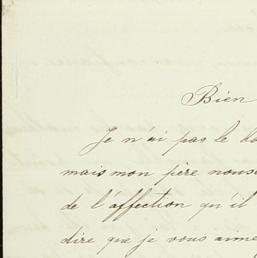 Bien
Je n'ai pas le bo
mais mon père nous
de l'affection qu'il
dire que je vous aime